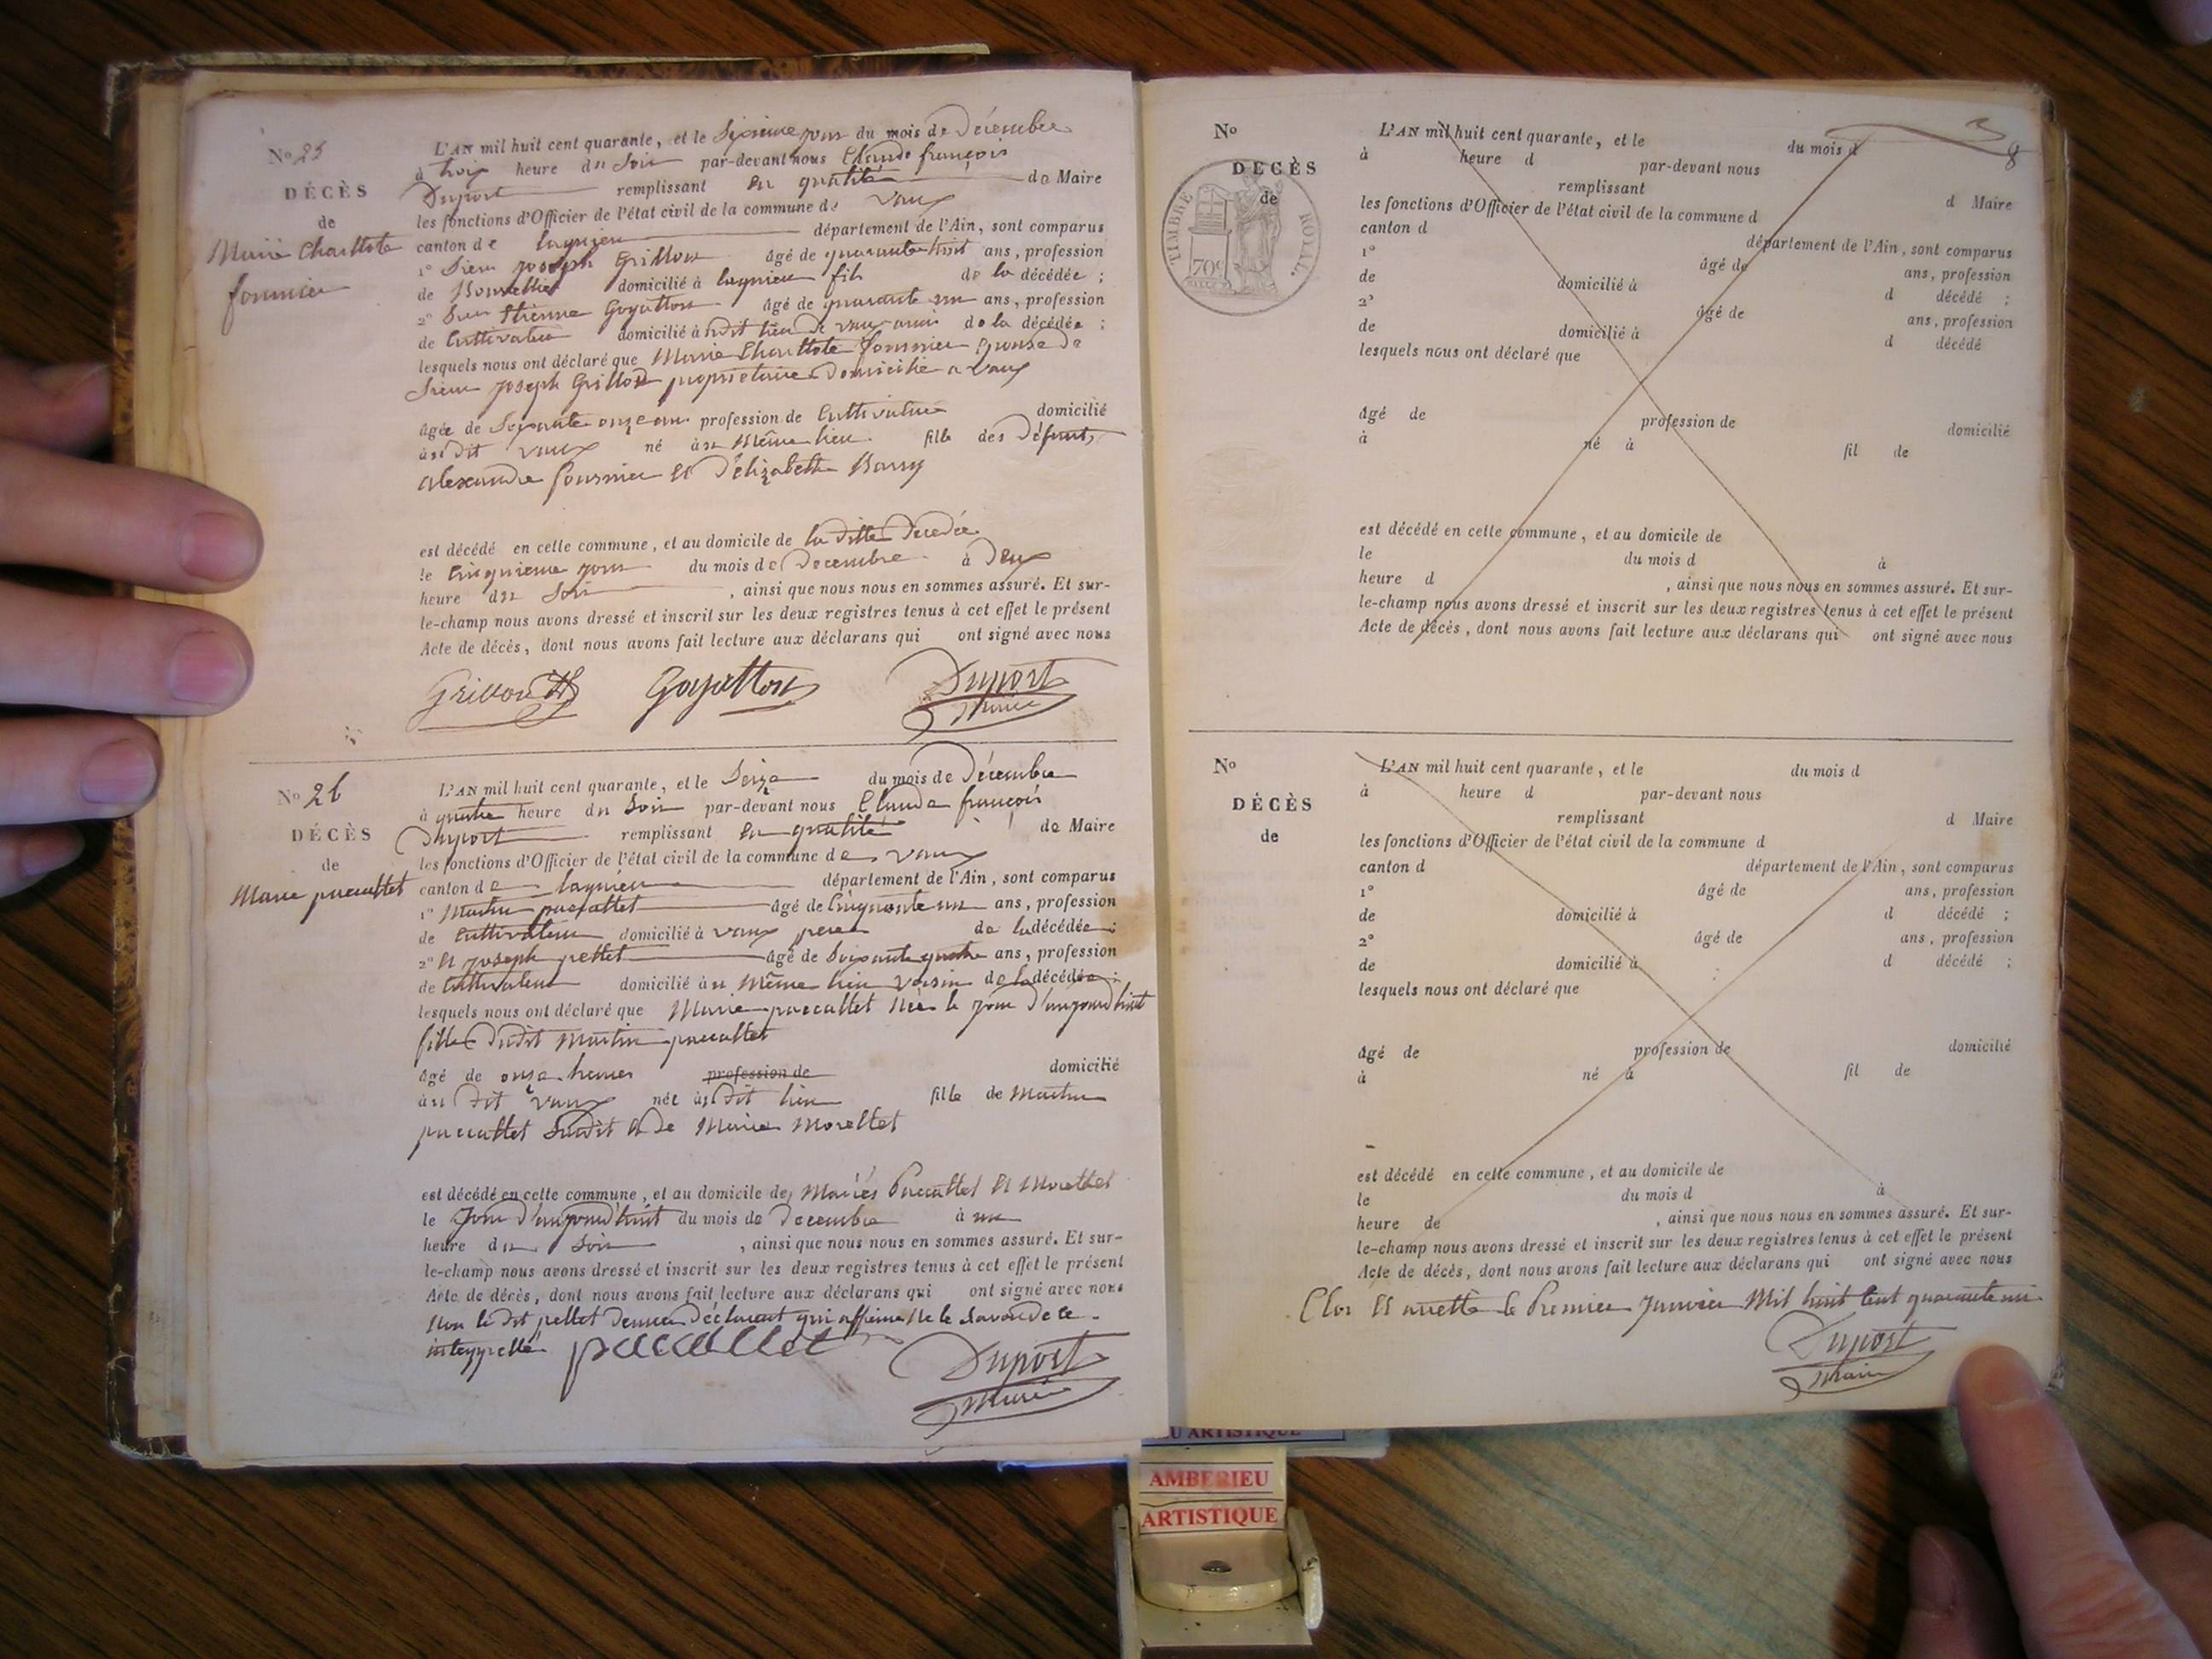 No 25
DÉCÈS
de
Marie Charlotte
fournier
L'AN mil huit cent quarante, et le Sixième jour du mois de Décembre
à trois heure du Soir par-devant nous Claude françois
Duport remplissant en qualité de Maire
les fonctions d'Officier de l'état civil de la commune de Vaux
canton de lagnieu département de l'Ain, sont comparus
1° Sieur Joseph Grillon âgé de quarante huit ans, profession
de domicilié à lagnieu fils de la décédée ;
2° Sieur Etienne Goyatton âgé de quarante un ans, profession
de Cultivateur domicilié à udit lieu de vaux ami de la décédée ;
lesquels nous ont déclaré que Marie Charlotte fournier Epouse de
Sieur Joseph Grillon propriétaire domicilié a Vaux
âgée de Soixante onze ans profession de Cultivatrice domicilié
à udit vaux né à u Même lieu fille des Défunts
alexandre fournier et d'élizabeth
est décédé en cette commune, et au domicile de la ditte Décedée
le Cinquième jour du mois de Decembre à Deux
heure du Soir , ainsi que nous nous en sommes assuré. Et sur-
le-champ nous avons dressé et inscrit sur les deux registres tenus à cet effet le présent
Acte de décès, dont nous avons fait lecture aux déclarans qui ont signé avec nous
Grillon Goyatton Duport
Maire
No 26
DÉCÈS
de
Marie puccattet
L'AN mil huit cent quarante, et le Seize du mois de Décembre
à quatre heure du Soir par-devant nous Claude françois
Duport remplissant en qualité de Maire
les fonctions d'Officier de l'état civil de la commune de Vaux
canton de lagnieu département de l'Ain, sont comparus
1° Martin puccattet âgé de Cinquante un ans, profession
de Cultivateur domicilié à vaux pere de la décédée ;
2° et joseph pettet âgé de Soixante quatre ans, profession
de Cultivateur domicilié à u même lieu voisin de la décédée ;
lesquels nous ont déclaré que Marie puccattet Née le jour d'aujourd'huit
fille dudit Martin puccattet
âgé de onze heures profession de domicilié
à u dit Vaux née à u dit lieu fille de Martin
puccattet Susdit et de Marie Morettet
est décédé en cette commune, et au domicile de Mariés Puccattet et Morettet
le Jour d'aujourd'huit du mois de Decembre à un
heure du Soir , ainsi que nous nous en sommes assuré. Et sur-
le-champ nous avons dressé et inscrit sur les deux registres tenus à cet effet le présent
Acte de décès, dont nous avons fait lecture aux déclarans qui ont signé avec nous
Non le dit pettet Déclarant qui affirme Ne le Savoir de ce
interppellé puccattet Duport
Maire
8
No
DÉCÈS
de
TIMBRE ROYAL
70c
L'AN mil huit cent quarante, et le du mois d
à heure d par-devant nous
remplissant d Maire
les fonctions d'Officier de l'état civil de la commune d
canton d département de l'Ain, sont comparus
1° âgé de ans, profession
de domicilié à d décédé ;
2° âgé de ans, profession
de domicilié à d décédé
lesquels nous ont déclaré que
âgé de profession de domicilié
à né à fil de
est décédé en cette commune, et au domicile de
le du mois d à
heure d , ainsi que nous nous en sommes assuré. Et sur-
le-champ nous avons dressé et inscrit sur les deux registres tenus à cet effet le présent
Acte de décès, dont nous avons fait lecture aux déclarans qui ont signé avec nous
No
DÉCÈS
de
L'AN mil huit cent quarante, et le du mois d
à heure d par-devant nous
remplissant d Maire
les fonctions d'Officier de l'état civil de la commune d
canton d département de l'Ain, sont comparus
1° âgé de ans, profession
de domicilié à d décédé ;
2° âgé de ans, profession
de domicilié à d décédé ;
lesquels nous ont déclaré que
âgé de profession de domicilié
à né à fil de
est décédé en cette commune, et au domicile de
le du mois d à
heure de , ainsi que nous nous en sommes assuré. Et sur-
le-champ nous avons dressé et inscrit sur les deux registres tenus à cet effet le présent
Acte de décès, dont nous avons fait lecture aux déclarans qui ont signé avec nous
Clos et arretté le Premier Janvier Mil huit Cent quarante un
Duport
Maire
U ARTISTIQUE
AMBERIEU
ARTISTIQUE